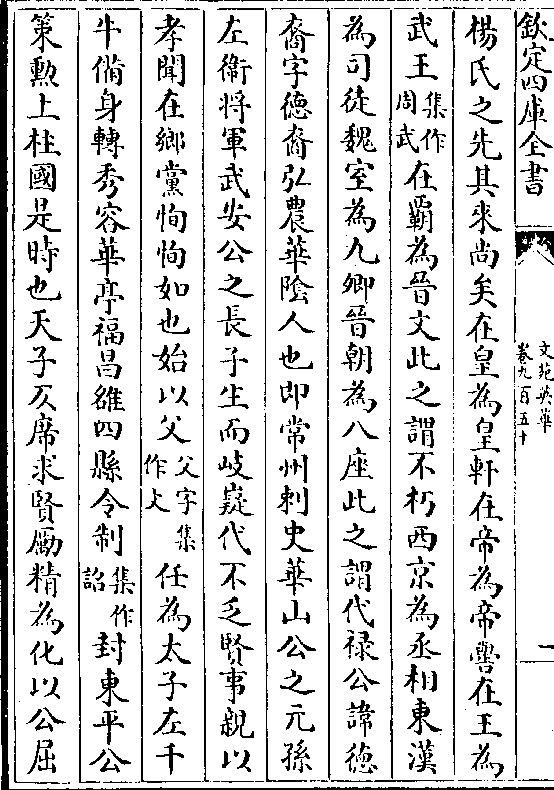 欽定四庫全書
文苑英華
卷九百五十
一
楊氏之先其來尚矣在皇為皇軒在帝為帝嚳在王為
武王集作周武在霸為晉文此之謂不朽西京為丞相東漢
為司徒魏室為九卿晉朝為八座此之謂代禄公諱德
裔字德裔弘農華陰人也即常州刺史華山公之元孫
左衛將軍武安公之長子生而岐嶷代不乏賢事親以
孝聞在鄉黨恂恂如也始以父父字集作大任為太子左千
牛備身轉秀容華亭福昌雒四縣令制集作詔封東平公
策勲上柱國是時也天子仄席求賢勵精為化以公屈